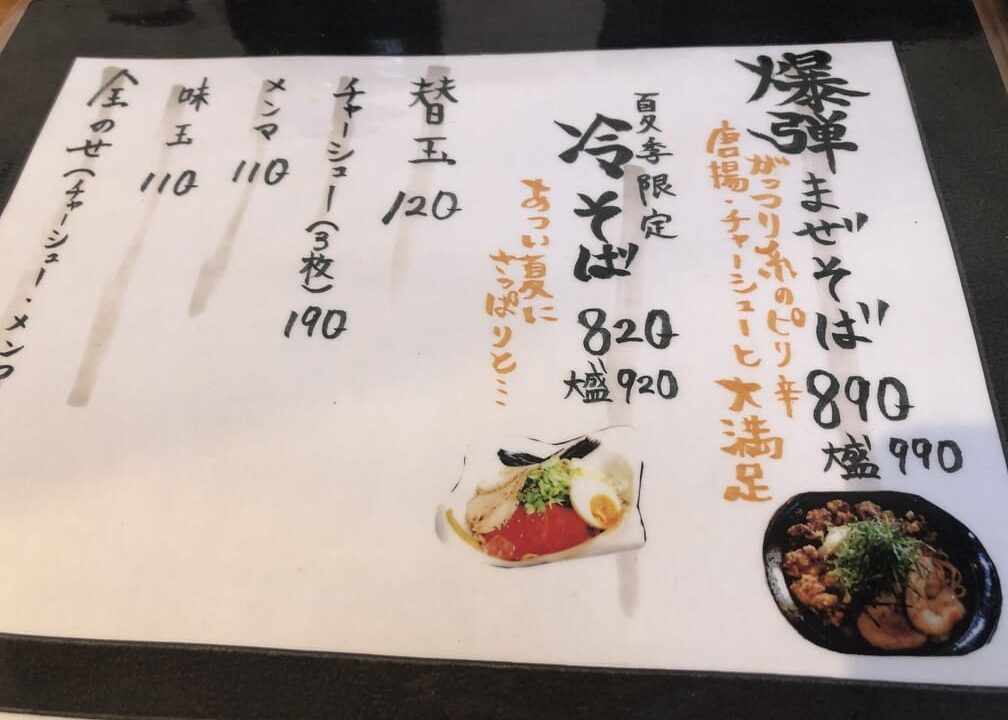 爆弾まぜそば 890
大盛 990
がっつり系のピリ辛
唐揚・チャーシューと大満足
夏季限定
冷そば 820
大盛 920
あつい夏に
さっぱりと…
替玉 120
チャーシュー(3枚) 190
メンマ 110
味玉 110
全のせ(チャーシュー・メンマ